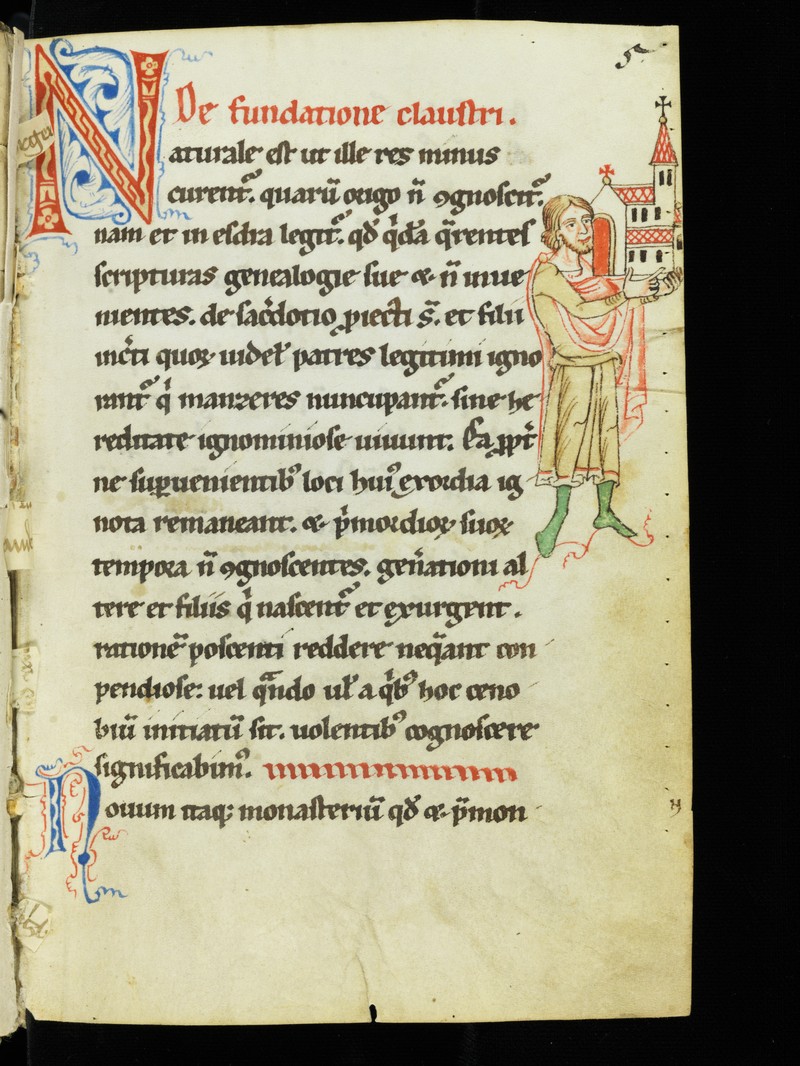 5
De fundatione claustri.
Naturale est ut ille res minus
curent᷑. quarū origo n̄ ꝯgnoscit᷑.
nam et in esdra legit᷑. qd̄ q̇da q̄rentes
scripturas genealogie sue & n̄ inue
nientes. de sac̓dotio ꝓiecti s̄. et filii
inc̓ti quoꝝ uidel̓ patres legitimi igno
rant᷑ q̇ manzeres nuncupant᷑. sine he
reditate ignominiose uiuunt. Ea ꝓpt̓
ne suꝑuenientibꝰ loci huiꝰ exordia ig
nota remaneant. & p̓mordioꝝ suoꝝ
tempora n̄ ꝯgnoscentes. gen̓ationi al
tere et filiis q̇ nascent᷑ et exurgent.
rationē poscenti reddere neq̄ant con
pendiose: uel q̄ndo ul̓ a q̇bꝰ hoc ceno
biū initiatū sit. uolentibꝰ cognoscere
significabimꝰ.
Nouum itaq; monasteriū qd̄ & p̓mon